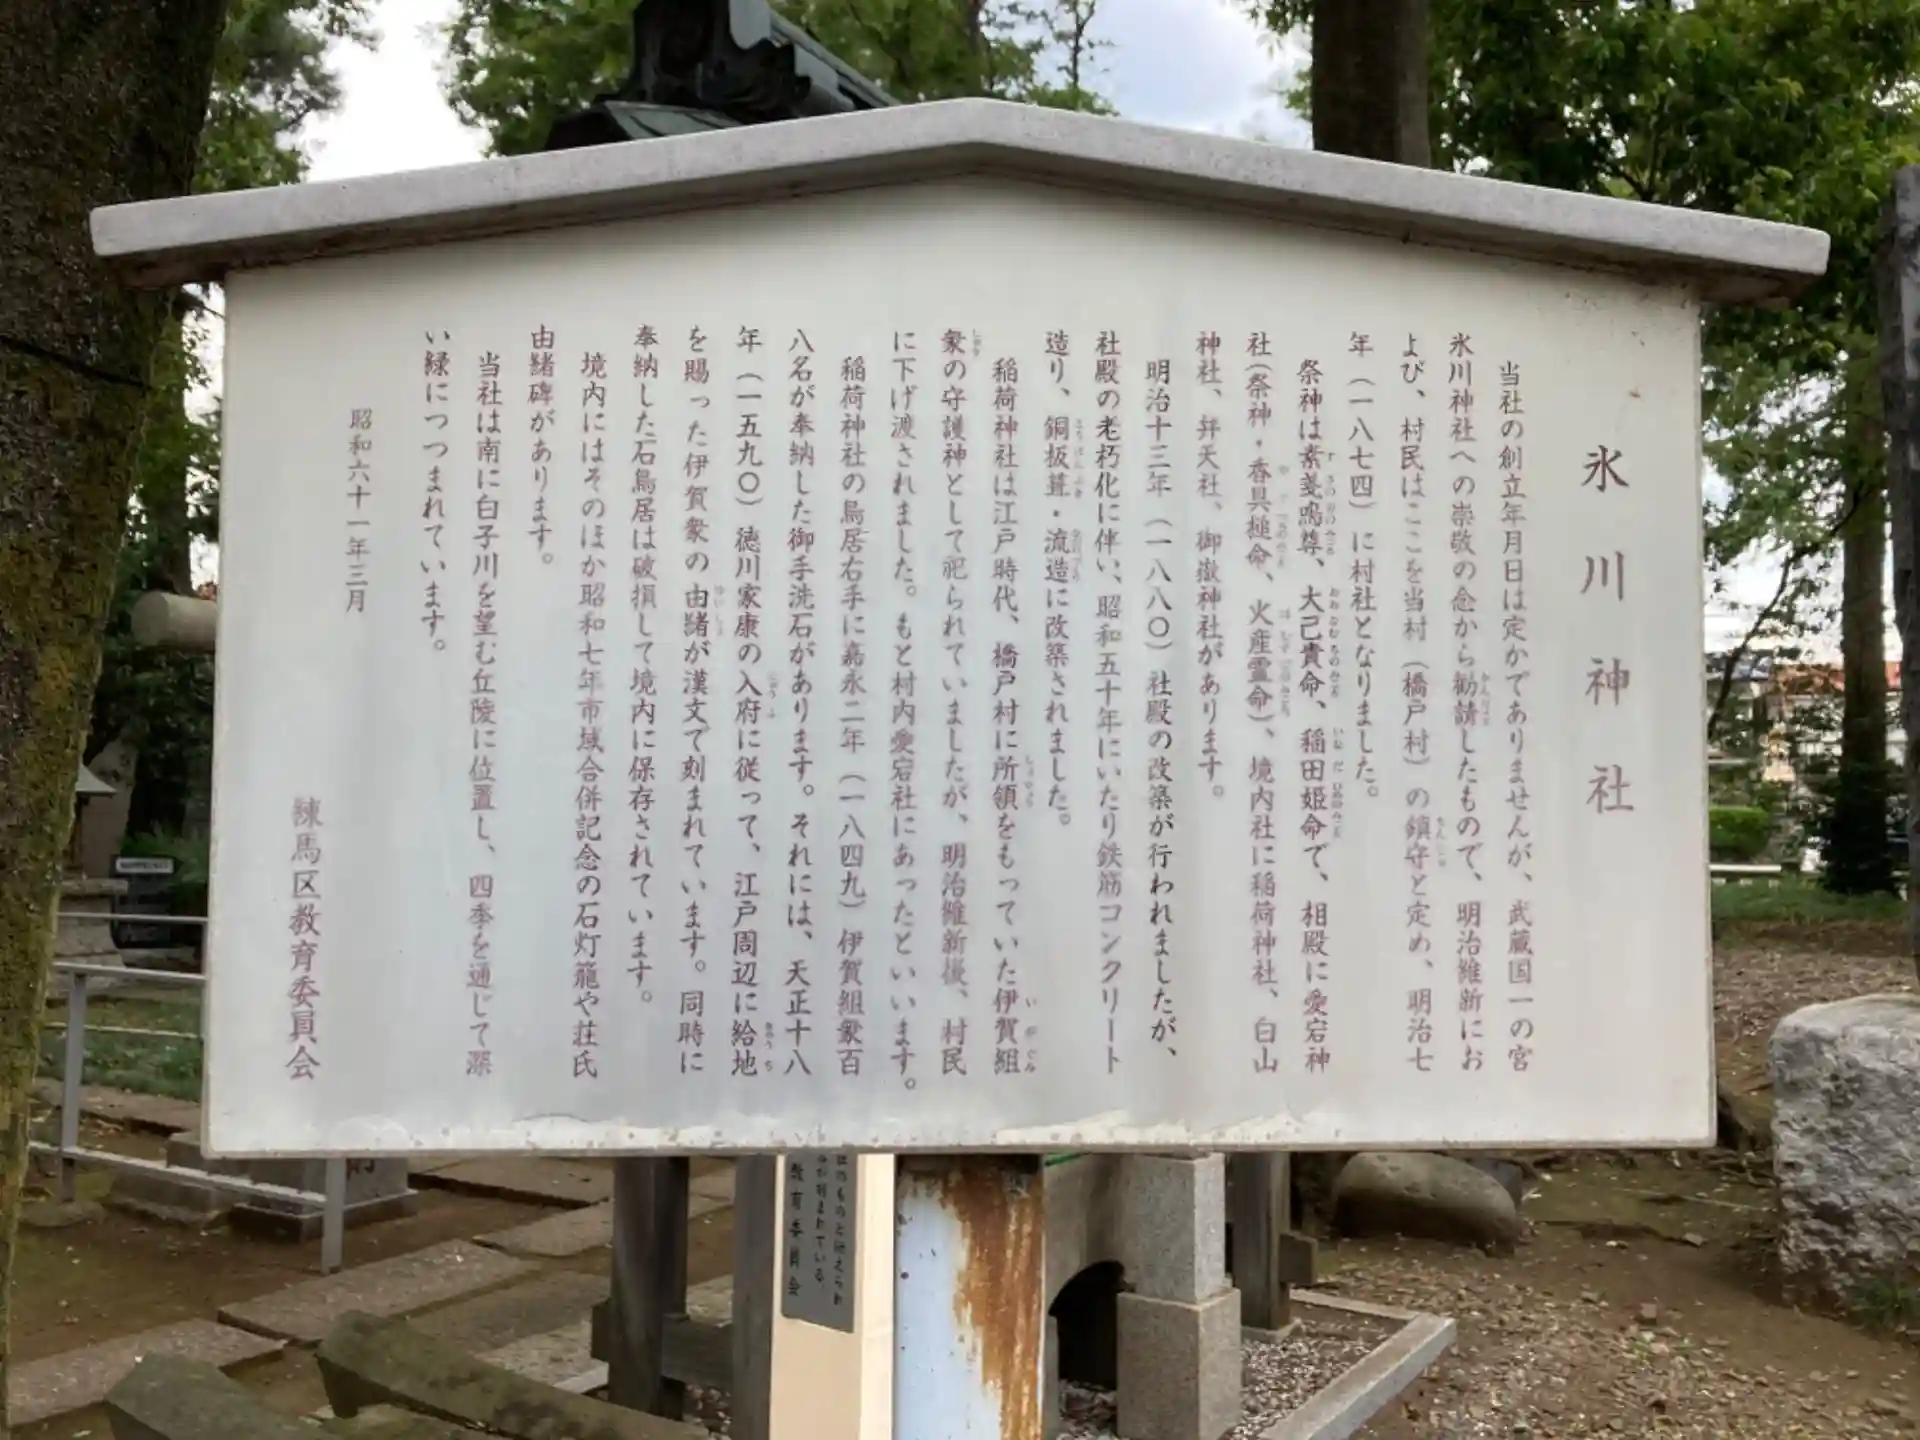 氷川神社
当社の創立年月日は定かでありませんが、武蔵国一の宮
氷川神社への崇敬の念から勧請したもので、明治維新にお
よび、村民はここを当村（橋戸村）の鎮守と定め、明治七
年（一八七四）に村社となりました。
祭神は素戔嗚尊、大己貴命、稲田姫命で、相殿に愛宕神
社（祭神・香具槌命、火産霊命）、境内社に稲荷神社、白山
神社、弁天社、御嶽神社があります。
明治十三年（一八八〇）社殿の改築が行われましたが、
社殿の老朽化に伴い、昭和五十年にいたり鉄筋コンクリート
造り、銅板葺・流造に改築されました。
稲荷神社は江戸時代、橋戸村に所領をもっていた伊賀組
衆の守護神として祀られていましたが、明治維新後、村民
に下げ渡されました。もと村内愛宕社にあったといいます。
稲荷神社の鳥居右手に嘉永二年（一八四九）伊賀組衆百
八名が奉納した御手洗石があります。それには、天正十八
年（一五九〇）徳川家康の入府に従って、江戸周辺に給地
を賜った伊賀衆の由緒が漢文で刻まれています。同時に
奉納した石鳥居は破損して境内に保存されています。
境内にはそのほか昭和七年市域合併記念の石灯籠や荘氏
由緒碑があります。
当社は南に白子川を望む丘陵に位置し、四季を通じて深
い緑につつまれています。
昭和六十一年三月
練馬区教育委員会
のものと伝えられ
が刻まれている。
教育委員会